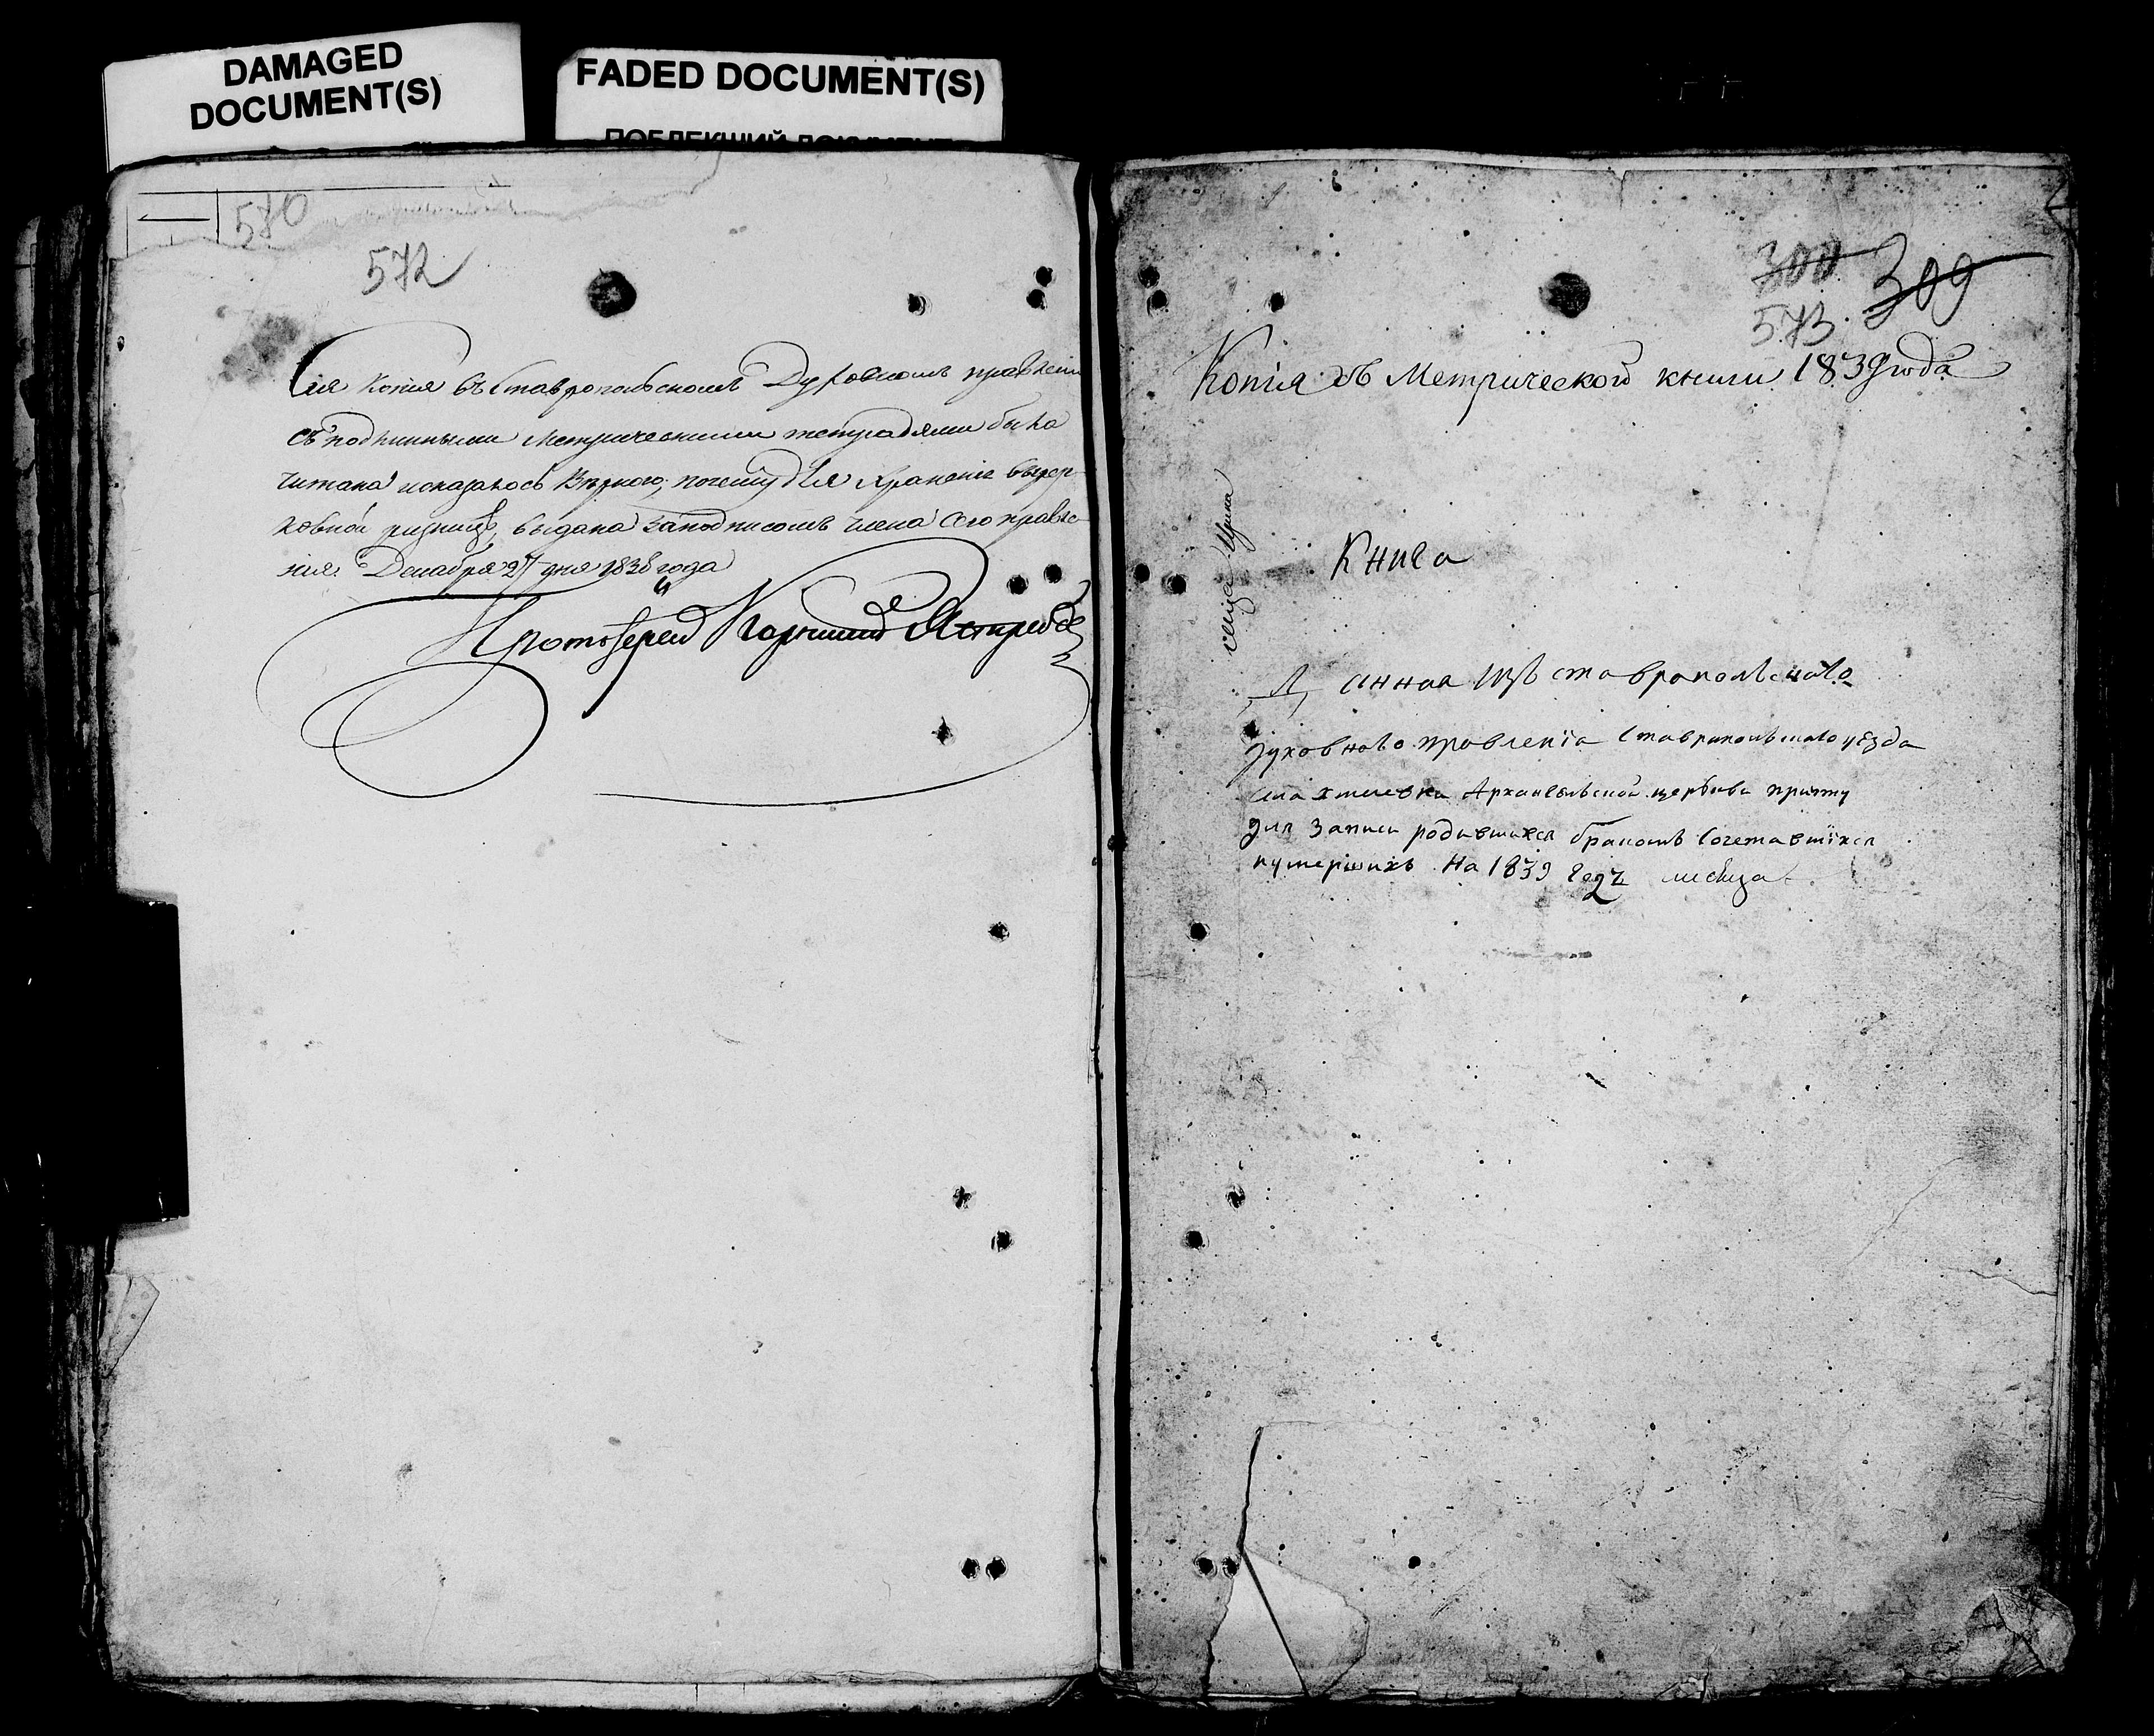 DAMAGED
DOCUMENT(S)
FADED DOCUMENT(S)
ПОБЛЕКШИЙ ДОКУМЕНТ
570
572
Сия Копия въ Ставропольскомъ Духовномъ правлении
съ подлинными метрическими тетрадями была
читана и оказалось Вѣрною, почему для хранения въ цер-
ковной ризнице, выдана за подписомъ члена Сего правле-
ния. Декабря 27 дня 1838 года
Протоіерей
300 309
573
Копия съ Метрической книги 1839 года
Книга
Данная изъ Ставропольскаго
духовнаго правленія Ставропольскаго уѣзда
села Хмелевки Архангельской церкви притчу
для Записи родившихся бракомъ Сочетавшихся
и умершихъ На 1839 годъ месеца